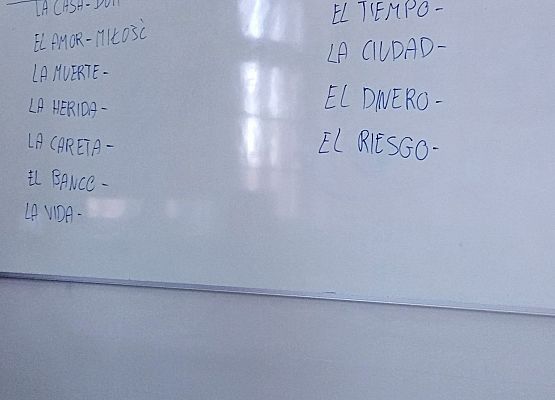 LA CASA- DOM
EL AMOR- MIŁOŚĆ
LA MUERTE-
LA HERIDA-
LA CARETA-
EL BANCO-
LA VIDA-
EL TIEMPO-
LA CIUDAD-
EL DINERO-
EL RIESGO-